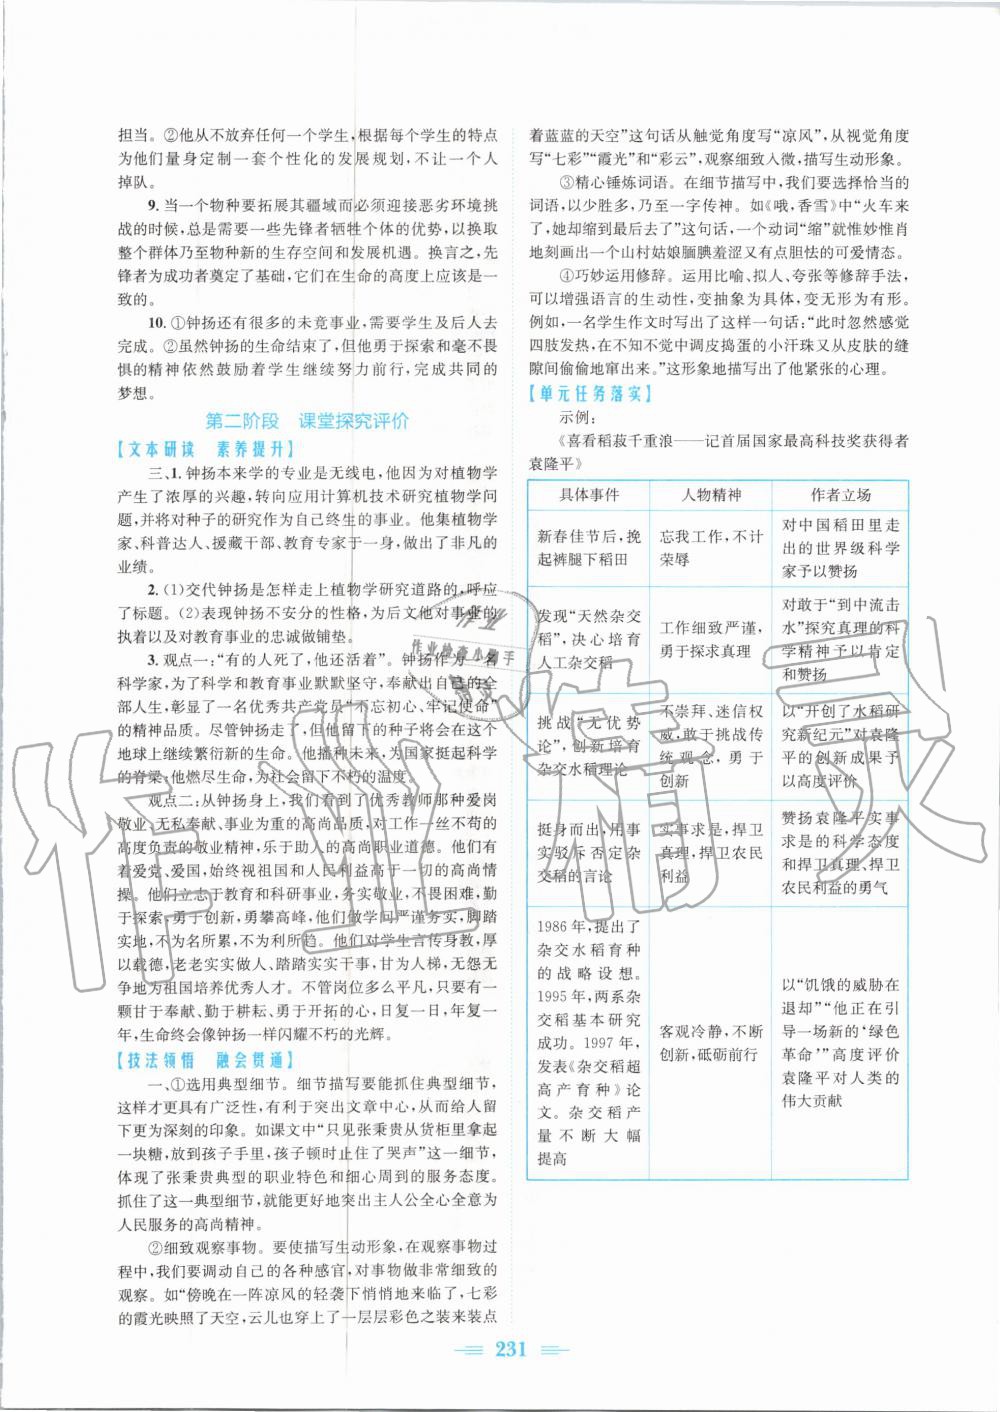 担当。②他从不放弃任何一个学生,根据每个学生的特点
为他们量身定制一套个性化的发展规划,不让一个人
掉队。
9. 当一个物种要拓展其疆域而必须迎接恶劣环境挑
战的时候,总是需要一些先锋者牺牲个体的优势,以换取
整个群体乃至物种新的生存空间和发展机遇。换言之,先
锋者为成功者奠定了基础,它们在生命的高度上应该是一
致的。
10. ①钟扬还有很多的未竟事业,需要学生及后人去
完成。②虽然钟扬的生命结束了,但他勇于探索和毫不畏
惧的精神依然鼓励着学生继续努力前行,完成共同的
梦想。
第二阶段 课堂探究评价
【文本研读 素养提升】
三、1. 钟扬本来学的专业是无线电,他因为对植物学
产生了浓厚的兴趣,转向应用计算机技术研究植物学问
题,并将对种子的研究作为自己终生的事业。他集植物学
家、科普达人、援藏干部、教育专家于一身,做出了非凡的
业绩。
2. (1)交代钟扬是怎样走上植物学研究道路的,呼应
了标题。(2)表现钟扬不安分的性格,为后文他对事业的
执着以及对教育事业的忠诚做铺垫。
3. 观点一:“有的人死了,他还活着”。钟扬作为一名
科学家,为了科学和教育事业默默坚守,奉献出自己的全
部人生,彰显了一名优秀共产党员“不忘初心、牢记使命”
的精神品质。尽管钟扬走了,但他留下的种子将会在这个
地球上继续繁衍新的生命。他播种未来,为国家挺起科学
的脊梁;他燃尽生命,为社会留下不朽的温度。
观点二:从钟扬身上,我们看到了优秀教师那种爱岗
敬业、无私奉献、事业为重的高尚品质,对工作一丝不苟的
高度负责的敬业精神,乐于助人的高尚职业道德。他们有
着爱党、爱国,始终视祖国和人民利益高于一切的高尚情
操。他们立志于教育和科研事业,务实敬业,不畏困难,勤
于探索,勇于创新,勇攀高峰,他们做学问严谨务实,脚踏
实地,不为名所累,不为利所趋。他们对学生言传身教,厚
以载德,老老实实做人、踏踏实实干事,甘为人梯,无怨无
争地为祖国培养优秀人才。不管岗位多么平凡,只要有一
颗甘于奉献、勤于耕耘、勇于开拓的心,日复一日,年复一
年,生命终会像钟扬一样闪耀不朽的光辉。
【技法领悟 融会贯通】
一、①选用典型细节。细节描写要能抓住典型细节,
这样才更具有广泛性,有利于突出文章中心,从而给人留
下更为深刻的印象。如课文中“只见张秉贵从货柜里拿起
一块糖,放到孩子手里,孩子顿时止住了哭声”这一细节,
体现了张秉贵典型的职业特色和细心周到的服务态度。
抓住了这一典型细节,就能更好地突出主人公全心全意为
人民服务的高尚精神。
②细致观察事物。要使描写生动形象,在观察事物过
程中,我们要调动自己的各种感官,对事物做非常细致的
观察。如“傍晚在一阵凉风的轻袭下悄悄地来临了,七彩
的霞光映照了天空,云儿也穿上了一层层彩色之装来装点
着蓝蓝的天空”这句话从触觉角度写“凉风”,从视觉角度
写“七彩”“霞光”和“彩云”,观察细致入微,描写生动形象。
③精心锤炼词语。在细节描写中,我们要选择恰当的
词语,以少胜多,乃至一字传神。如《哦,香雪》中“火车来
了,她却缩到最后去了”这句话,一个动词“缩”就惟妙惟肖
地刻画出一个山村姑娘腼腆羞涩又有点胆怯的可爱情态。
④巧妙运用修辞。运用比喻、拟人、夸张等修辞手法,
可以增强语言的生动性,变抽象为具体,变无形为有形。
例如,一名学生作文时写出了这样一句话:“此时忽然感觉
四肢发热,在不知不觉中调皮捣蛋的小汗珠又从皮肤的缝
隙间偷偷地窜出来。”这形象地描写出了他紧张的心理。
【单元任务落实】
示例:
《喜看稻菽千重浪——记首届国家最高科技奖获得者
袁隆平》
具体事件 人物精神 作者立场
新春佳节后,挽
起裤腿下稻田
忘我工作,不计
荣辱
对中国稻田里走
出的世界级科学
家予以赞扬
发现“天然杂交
稻”,决心培育
人工杂交稻
工作细致严谨,
勇于探求真理
对敢于“到中流击
水”探究真理的科
学精神予以肯定
和赞扬
挑战“无优势
论”,创新培育
杂交水稻理论
不崇拜、迷信权
威,敢于挑战传
统观念,勇于
创新
以“开创了水稻研
究新纪元”对袁隆
平的创新成果予
以高度评价
挺身而出,用事
实驳斥否定杂
交稻的言论
实事求是,捍卫
真理,捍卫农民
利益
赞扬袁隆平实事
求是的科学态度
和捍卫真理、捍卫
农民利益的勇气
1986年,提出了
杂交水稻育种
的战略设想。
1995年,两系杂
交稻基本研究
成功。1997年,
发表《杂交稻超
高产育种》论
文。杂交稻产
量不断大幅
提高
客观冷静,不断
创新,砥砺前行
以“饥饿的威胁在
退却”“他正在引
导一场新的‘绿色
革命’”高度评价
袁隆平对人类的
伟大贡献
231
作业精灵
作业
作业检查小助手
精灵